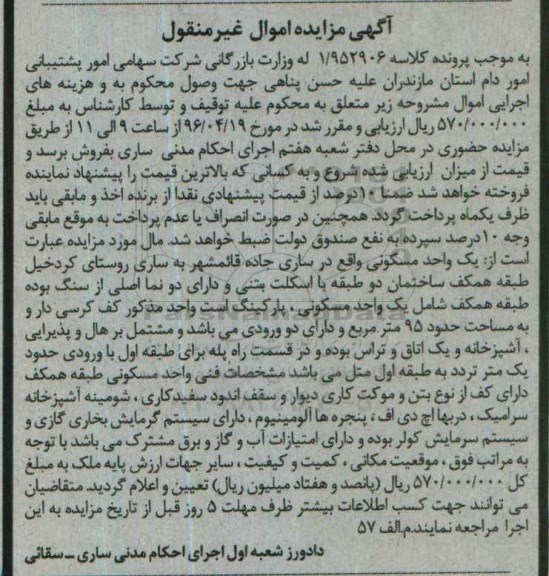 آگهی مزایده اموال غیرمنقول
به موجب پرونده کلاسه ۱/۹۵۲۹۰۶ له وزارت بازرگانی شرکت سهامی امور پشتیبانی
امور دام استان مازندران علیه حسن پناهی جهت وصول محکوم به و هزینه های
اجرایی اموال مشروحه زیر متعلق به محکوم علیه توقیف و توسط کارشناس به مبلغ
۵۷۰/۰۰۰/۰۰۰ ریال ارزیابی و مقرر شد در مورخ ۹۶/۰۴/۱۹ از ساعت ۹ الی ۱۱ از طریق
مزایده حضوری در محل دفتر شعبه هفتم اجرای احکام مدنی ساری بفروش برسد و
قیمت از میزان ارزیابی شده شروع و به کسانی که بالاترین قیمت را پیشنهاد نماینده
فروخته خواهد شد ضمنا ۱۰درصد از قیمت پیشنهادی نقدا از برنده اخذ و مابقی باید
ظرف یکماه پرداخت گردد. همچنین در صورت انصراف یا عدم پرداخت به موقع مابقی
وجه ۱۰درصد سپرده به نفع صندوق دولت ضبط خواهد شد. مال مورد مزایده عبارت
است از: یک واحد مسکونی واقع در ساری جاده قائمشهر به ساری روستای کردخیل
طبقه همکف ساختمان دو طبقه با اسکلت بتنی و دارای دو نما اصلی از سنگ بوده
طبقه همکف شامل یک واحد مسکونی ، پارکینگ است واحد مذکور کف کرسی دار و
به مساحت حدود ۹۵ متر مربع و دارای دو ورودی می باشد و مشتمل بر هال و پذیرایی
، آشپزخانه و یک اتاق و تراس بوده و در قسمت راه پله برای طبقه اول با ورودی حدود
یک متر تردد به طبقه اول متل می باشد مشخصات فنی واحد مسکونی طبقه همکف
دارای کف از نوع بتن و موکت کاری دیوار و سقف اندود سفیدکاری ، شومینه آشپزخانه
سرامیک ، دربها اچ دی اف ، پنجره ها آلومینیوم ، دارای سیستم گرمایش بخاری گازی و
سیستم سرمایش کولر بوده و دارای امتیازات آب و گاز و برق مشترک می باشد با توجه
به مراتب فوق ، موقعیت مکانی ، کمیت و کیفیت ، سایر جهات ارزش پایه ملک به مبلغ
کل ۵۷۰/۰۰۰/۰۰۰ ریال (پانصد و هفتاد میلیون ریال) تعیین و اعلام گردید. متقاضیان
می توانند جهت کسب اطلاعات بیشتر ظرف مهلت ۵ روز قبل از تاریخ مزایده به این
اجرا مراجعه نمایند.م.الف ۵۷
دادورز شعبه اول اجرای احکام مدنی ساری ــ سقائی